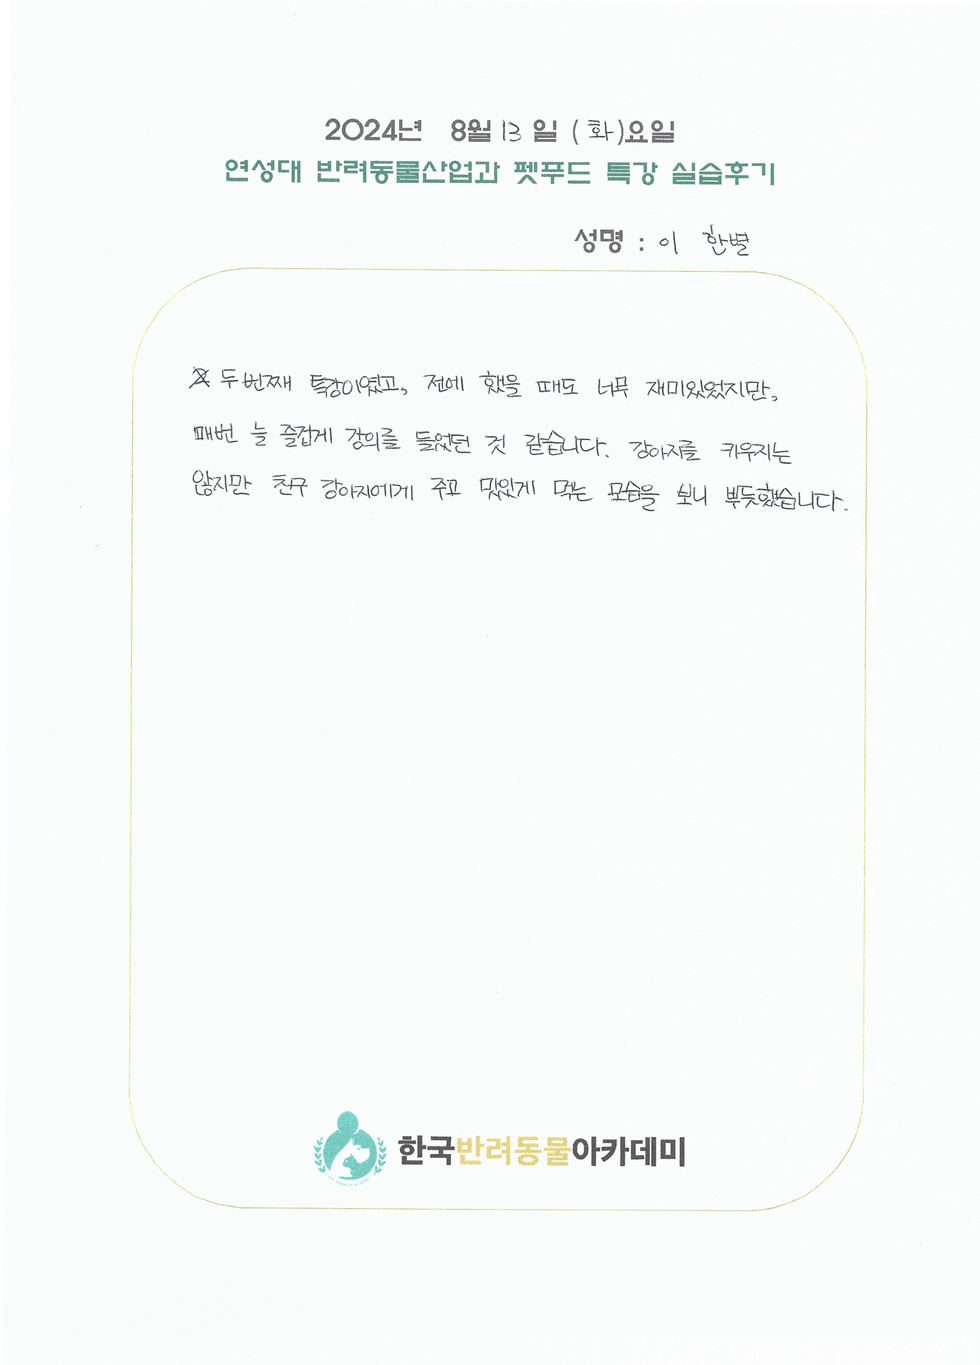 2024년 8월 13일 (화)요일
연성대 반려동물산업과 펫푸드 특강 실습후기
성명 : 이 한별
두번째 특강이였고, 전에 했을 때도 너무 재미있었지만,
매번 늘 즐겁게 강의를 들었던 것 같습니다. 강아지를 키우지는
않지만 친구 강아지에게 주고 맛있게 먹는 모습을 보니 뿌듯했습니다.
한국반려동물아카데미